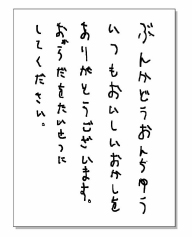 ぶんかどうおんちゆう
いつもおいしいおかしを
ありがとうございます。
おからだをたいせつに
してください。